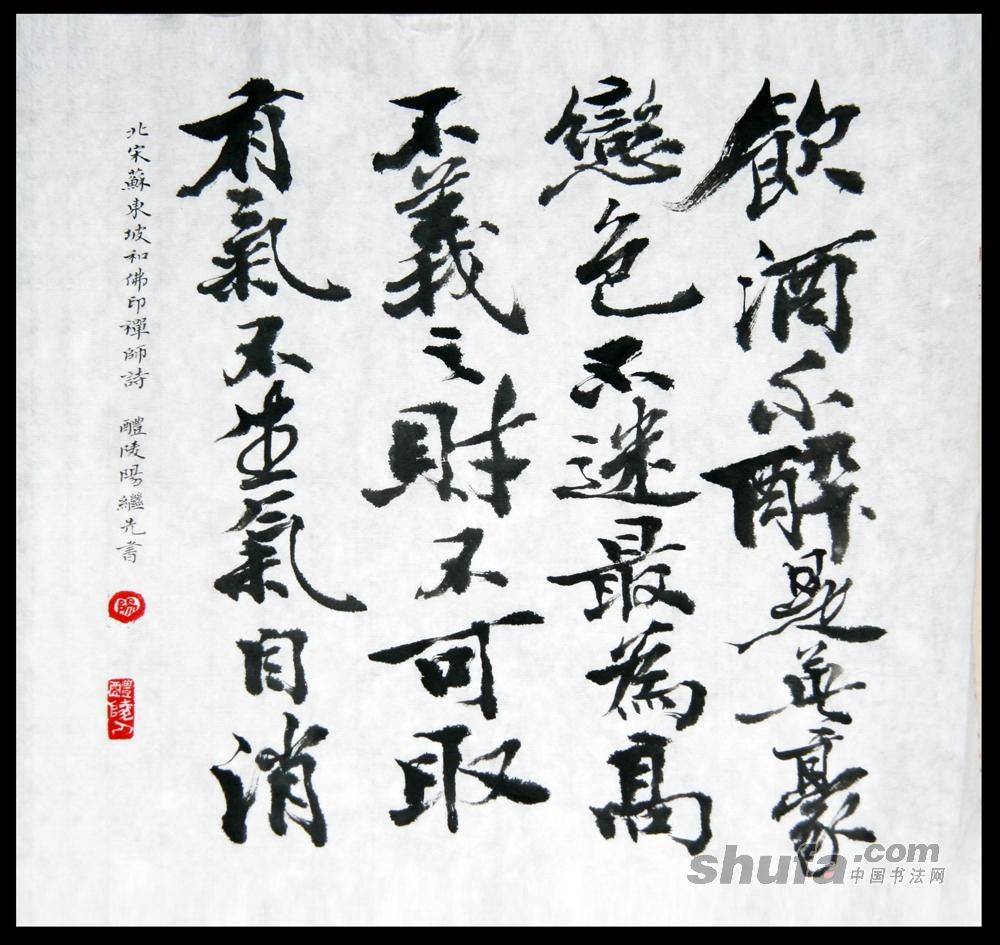 飲酒不醉是英豪
戀色不迷最為高
不義之財不可取
有氣不生氣自消
北宋蘇東坡和佛印禪師詩 醴陵陽繼先書
陽
醴陵人
shufa.com
中国书法网